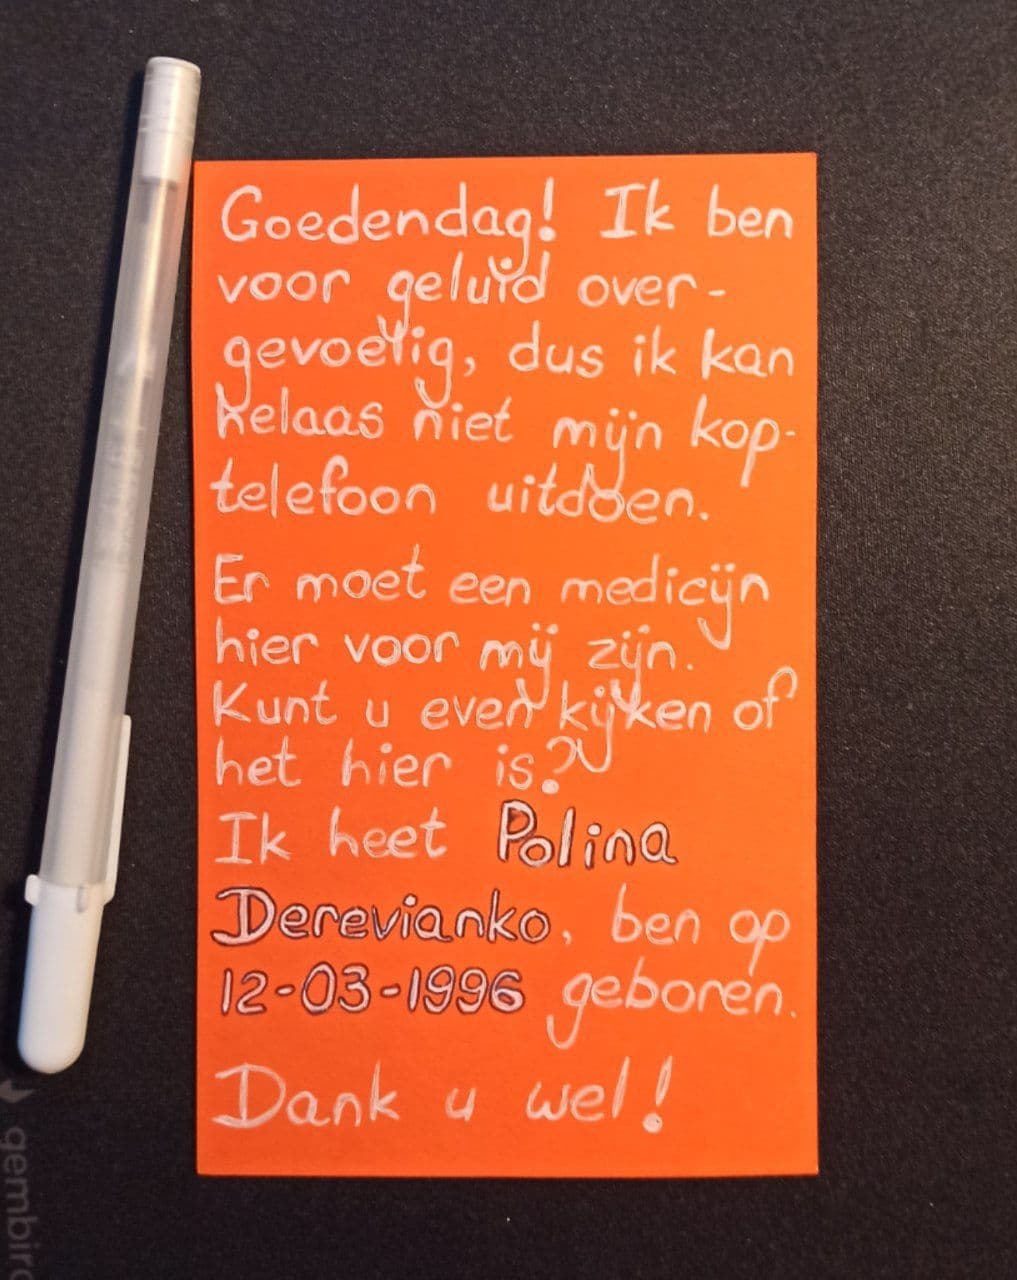 Goedendag! Ik ben
voor geluid over-
gevoelig, dus ik kan
helaas niet mijn kop-
telefoon uitdoen.
Er moet een medicijn
hier voor mij zijn.
Kunt u even kijken of
het hier is?
Ik heet Polina
Derevianko, ben op
12-03-1996 geboren.
Dank u wel!
gembird